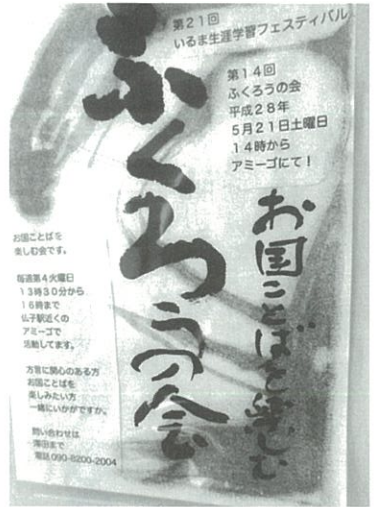 第21回
いるま生涯学習フェスティバル
第14回
ふくろうの会
平成28年
5月21日土曜日
14時から
アミーゴにて!
ふくろうの会
お国ことばを楽しむ
お国ことばを
楽しむ会です。
毎週第4火曜日
13時30分から
16時まで
仏子駅近くの
アミーゴで
活動してます。
方言に関心のある方
お国ことばを
楽しみたい方
一緒にいかがですか。
問い合わせは
澤田まで
電話090-8200-2004